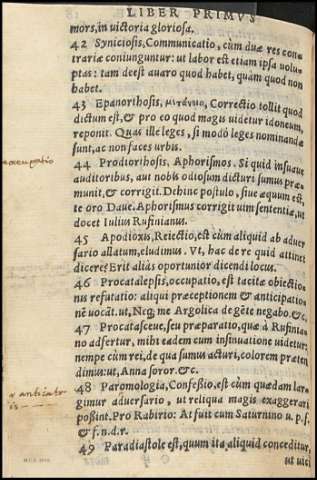 LIBER PRIMVS
mors, in uictoria gloriosa.
42 Syniciosis, Communicatio, cùm duæ res con
trariæ coniunguntur: ut labor est etiam ipsa uolu-
ptas: tam deest auaro quod habet, quàm quod non
habet.
43 Epanorthosis, μετάνοια, Correctio tollit quod
dictum est, & pro eo quod magis uidetur idoneum,
reponit. Quas ille leges, si modò leges nominandæ
sunt, ac non faces urbis.
44 Prodiorthosis, Aphorismos. Si quid insuaue
auditoribus, aut nobis odiosum dicturi sumus præ
munit, & corrigit. Dehinc postulo, siue æquum est,
te oro Daue. Aphorismus corrigit uim sententiæ, ut
docet Iulius Rufinianus.
45 Apodioxis, Reiectio, est cùm aliquid ab aduer
sario allatum, eludimus. Vt, hac de re quid attinet
dicere? Erit aliàs oportunior dicendi locus.
46 Procatalepsis, occupatio, est tacitæ obiectio
nis refutatio: aliqui præceptionem & anticipatio
nē uocāt. ut, Neq; me Argolica de gēte negabo. &c.
47 Procatasceue, seu præparatio, quā à Rufinia
no adfertur, mihi eadem cum insinuatione uidetur:
nempe cùm rei, de qua sumus acturi, colorem præten
dimus: ut, Anna soror. &c.
48 Paromologia, Confessio, est cùm quædam lar
gimur aduersario, ut reliqua magis exaggerari
possint. Pro Rabirio: At fuit cum Saturnino u. p. f.
& f. n. d. r.
49 Paradiastole est, quum ita aliquid conceditur,
ut uici